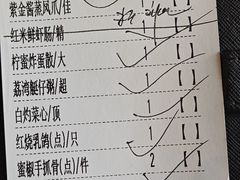 紫金酱蒸凤爪/佳
红米鲜虾肠/精 1 【 】
柠蜜炸蛋散/大 1 【 】
荔湾艇仔粥/超 1 【 】
白灼菜心/顶 1 【 】
红烧乳鸽(点)/只 1 【 】
蜜椒手抓骨(点)/件 2 【 】